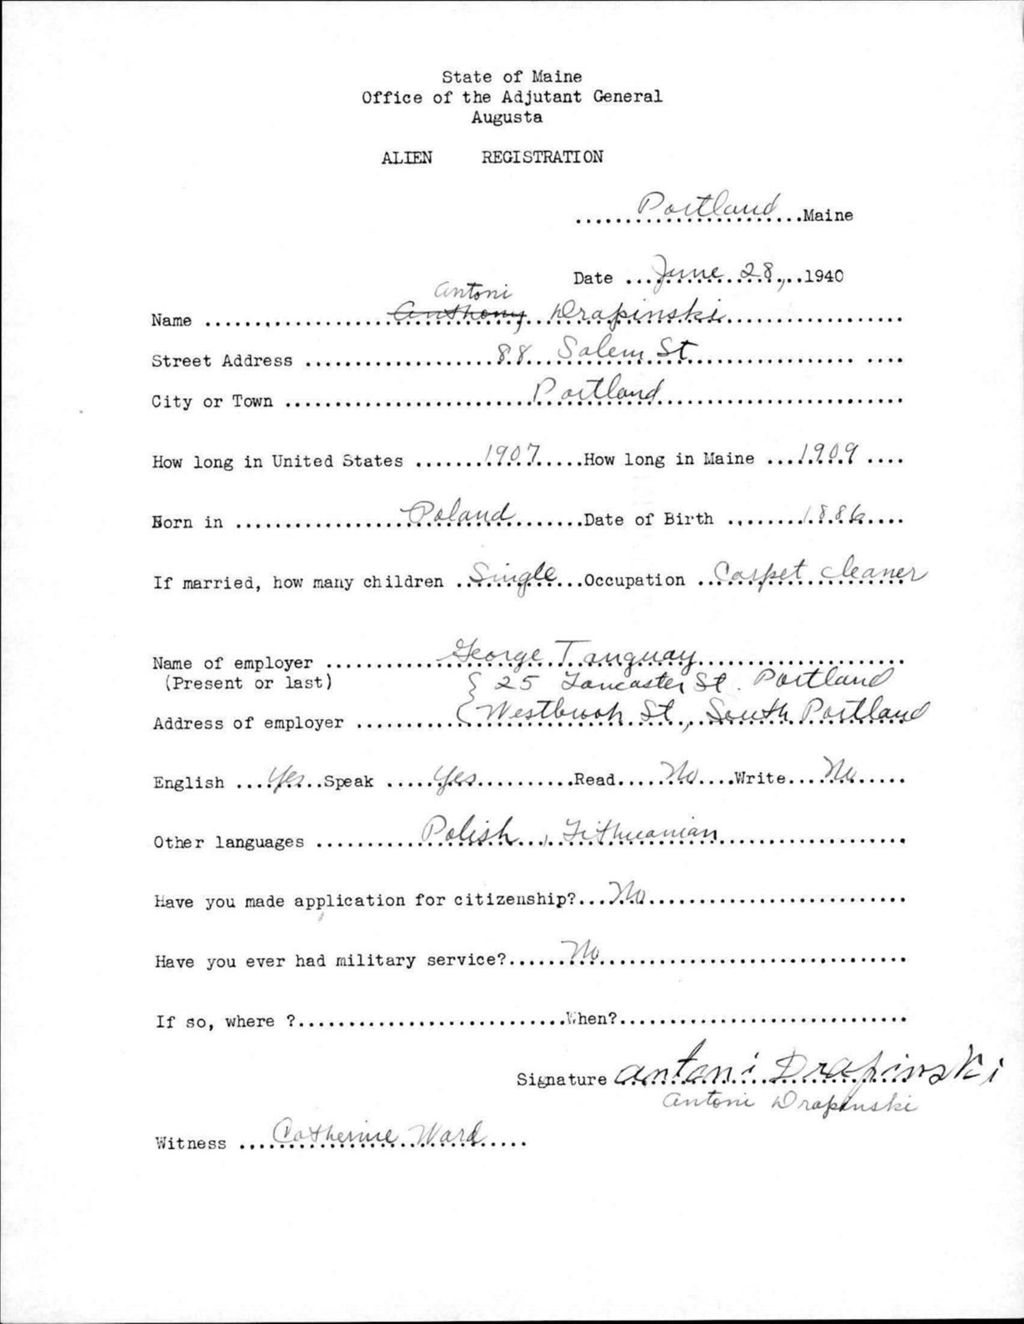 State of Maine
Office of the Adjutant General
Augusta
ALIEN REGISTRATION
Portland Maine
Date June 28, 1940
Antoni
Name Anthony Drapinski
Street Address 88 Salem St
City or Town Portland
How long in United States 1907 How long in Maine 1909
Born in Poland Date of Birth 1886
If married, how many children Single Occupation Carpet cleaner
Name of employer George Tanguay
(Present or last) { 25 Lancaster St. Portland
Address of employer Westbrook St., South Portland
English Yes Speak Yes Read No Write No
Other languages Polish, Lithuanian
Have you made application for citizenship? No
Have you ever had military service? No
If so, where ? When?
Signature antoni Drapinski
Antoni Drapinski
Witness Catherine Ward